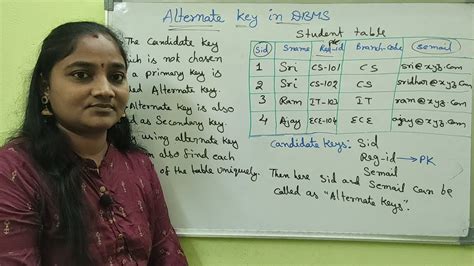 Alternate Key in DBMS
The Candidate key
which is not chosen
a primary key is
Alternate Key.
Alternate Key is also
as Secondary key.
using alternate key
also find each
of the table uniquely.
Student table
PK
Sid Sname Reg-id Branch-code Semail
1 Sri CS-101 CS sri@xyz.com
2 Sri CS-102 CS sridhar@xyz.com
3 Ram IT-103 IT ram@xyz.com
4 Ajay ECE-104 ECE ajay@xyz.com
Candidate Keys: Sid
Reg-id → PK
Semail
Then here Sid and Semail can be
called as "Alternate Keys".